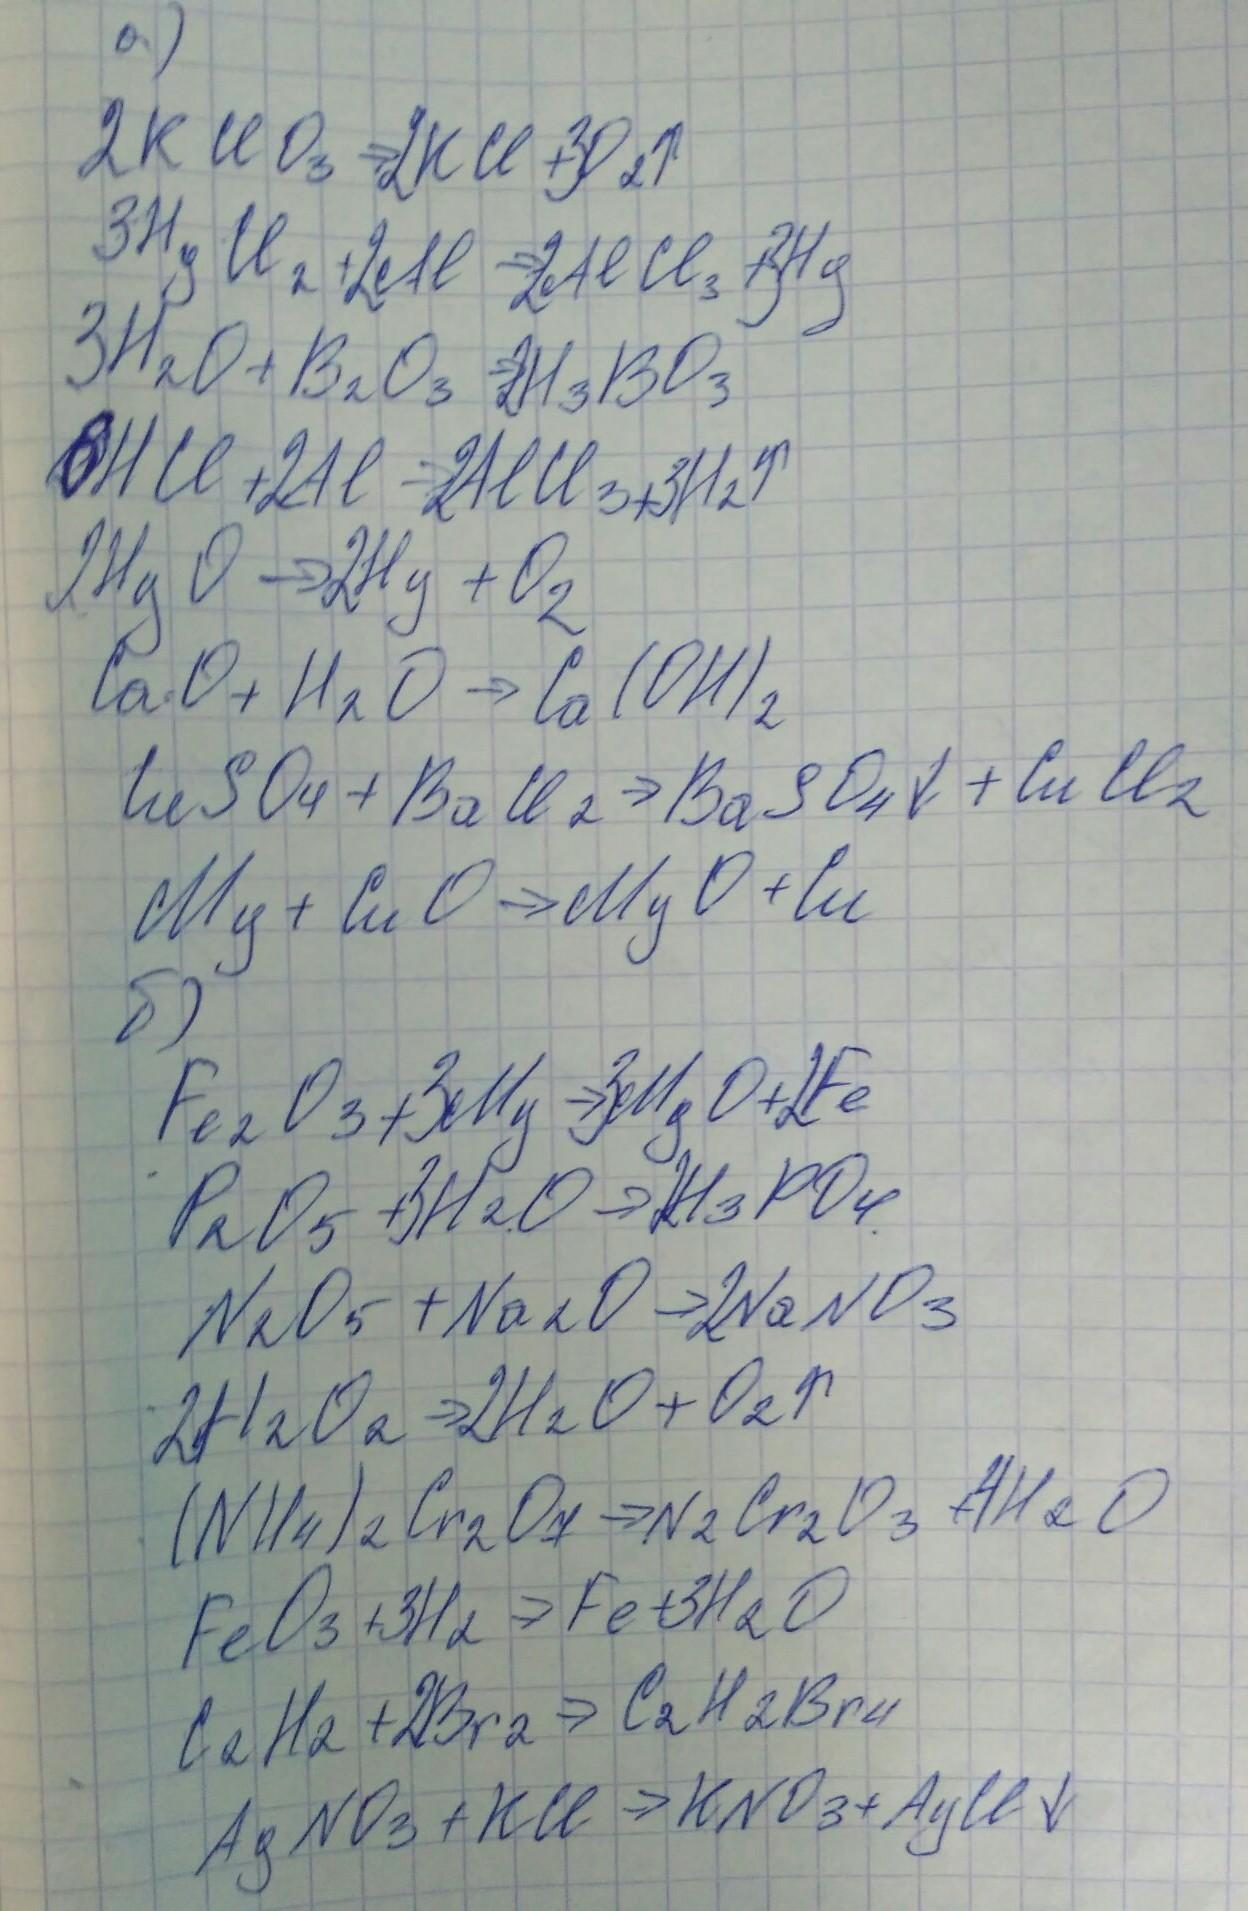 а)
2KClO3 → 2KCl + 3O2↑
3HgCl2 + 2Al → 2AlCl3 + 3Hg
3H2O + B2O3 → 2H3BO3
6HCl + 2Al → 2AlCl3 + 3H2↑
2HgO → 2Hg + O2
CaO + H2O → Ca(OH)2
CuSO4 + BaCl2 → BaSO4↓ + CuCl2
Mg + CuO → MgO + Cu
б)
Fe2O3 + 3Mg → 3MgO + 2Fe
P2O5 + 3H2O → 2H3PO4
N2O5 + Na2O → 2NaNO3
2H2O2 → 2H2O + O2↑
(NH4)2Cr2O7 → N2Cr2O3 + 4H2O
FeO3 + 3H2 → Fe + 3H2O
C2H2 + 2Br2 → C2H2Br4
AgNO3 + KCl → KNO3 + AgCl↓